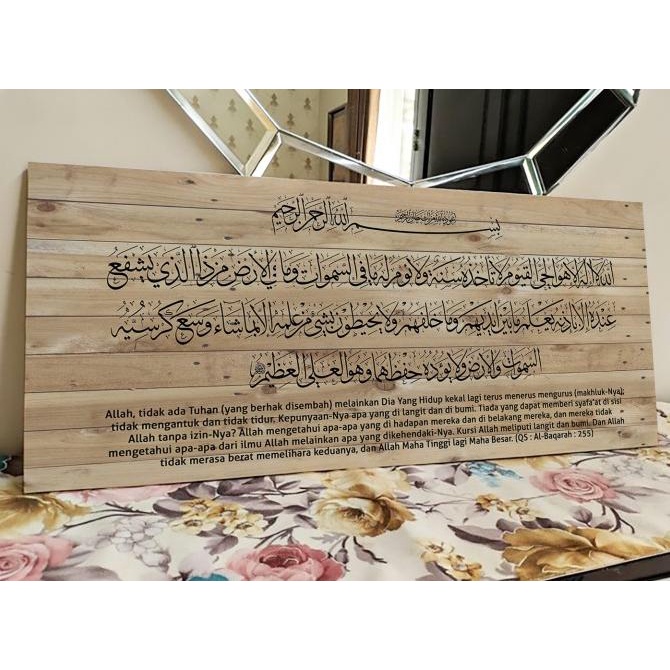 بسم الله الرحمن الرحيم
الله لا اله الا هو الحي القيوم لا تأخذه سنة ولا نوم له ما في السموات وما في الارض من ذا الذي يشفع
عنده الا باذنه يعلم ما بين ايديهم وما خلفهم ولا يحيطون بشيء من علمه الا بما شاء وسع كرسيه
السموات والارض ولا يؤده حفظهما وهو العلي العظيم
Allah, tidak ada Tuhan (yang berhak disembah) melainkan Dia Yang Hidup kekal lagi terus menerus mengurus (makhluk-Nya);
tidak mengantuk dan tidak tidur. Kepunyaan-Nya apa yang di langit dan di bumi. Tiada yang dapat memberi syafa'at di sisi
Allah tanpa izin-Nya? Allah mengetahui apa-apa yang di hadapan mereka dan di belakang mereka, dan mereka tidak
mengetahui apa-apa dari ilmu Allah melainkan apa yang dikehendaki-Nya. Kursi Allah meliputi langit dan bumi. Dan Allah
tidak merasa berat memelihara keduanya, dan Allah Maha Tinggi lagi Maha Besar. (QS : Al-Baqarah : 255)